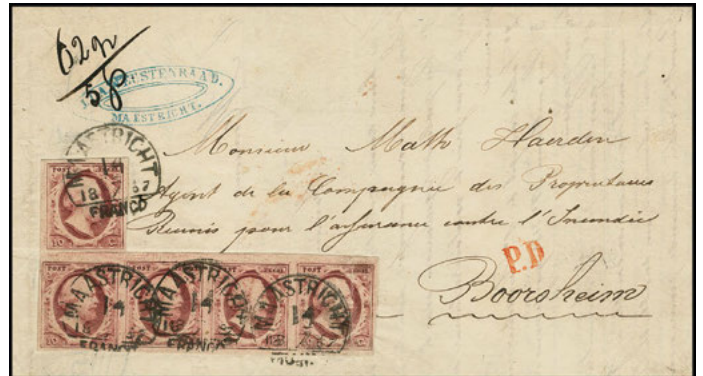 62 gr
58
MEESTENRAAD.
MAESTRICHT.
MAASTRICHT
14
18 7 67
FRANCO
POST
10 C
Monsieur Math Haerden
Agent de la Compagnie des Propriétaires
Réunis pour l'assurance contre l'Incendie
P.D
Boorsheim
POST ZEGEL
MAASTRICHT
14
FRANCO
MAASTRICHT
14
FRANCO
MAASTRICHT
14